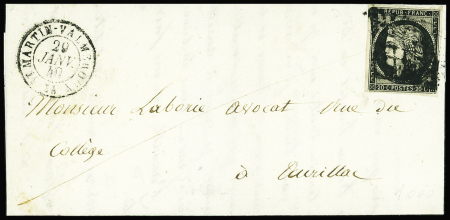 ST MARTIN-VALMEROUX
29
JANV.
49
REPUB. FRANC.
20 C POSTES 20 C
Monsieur Laborie avocat rue du
Collège
à Aurillac